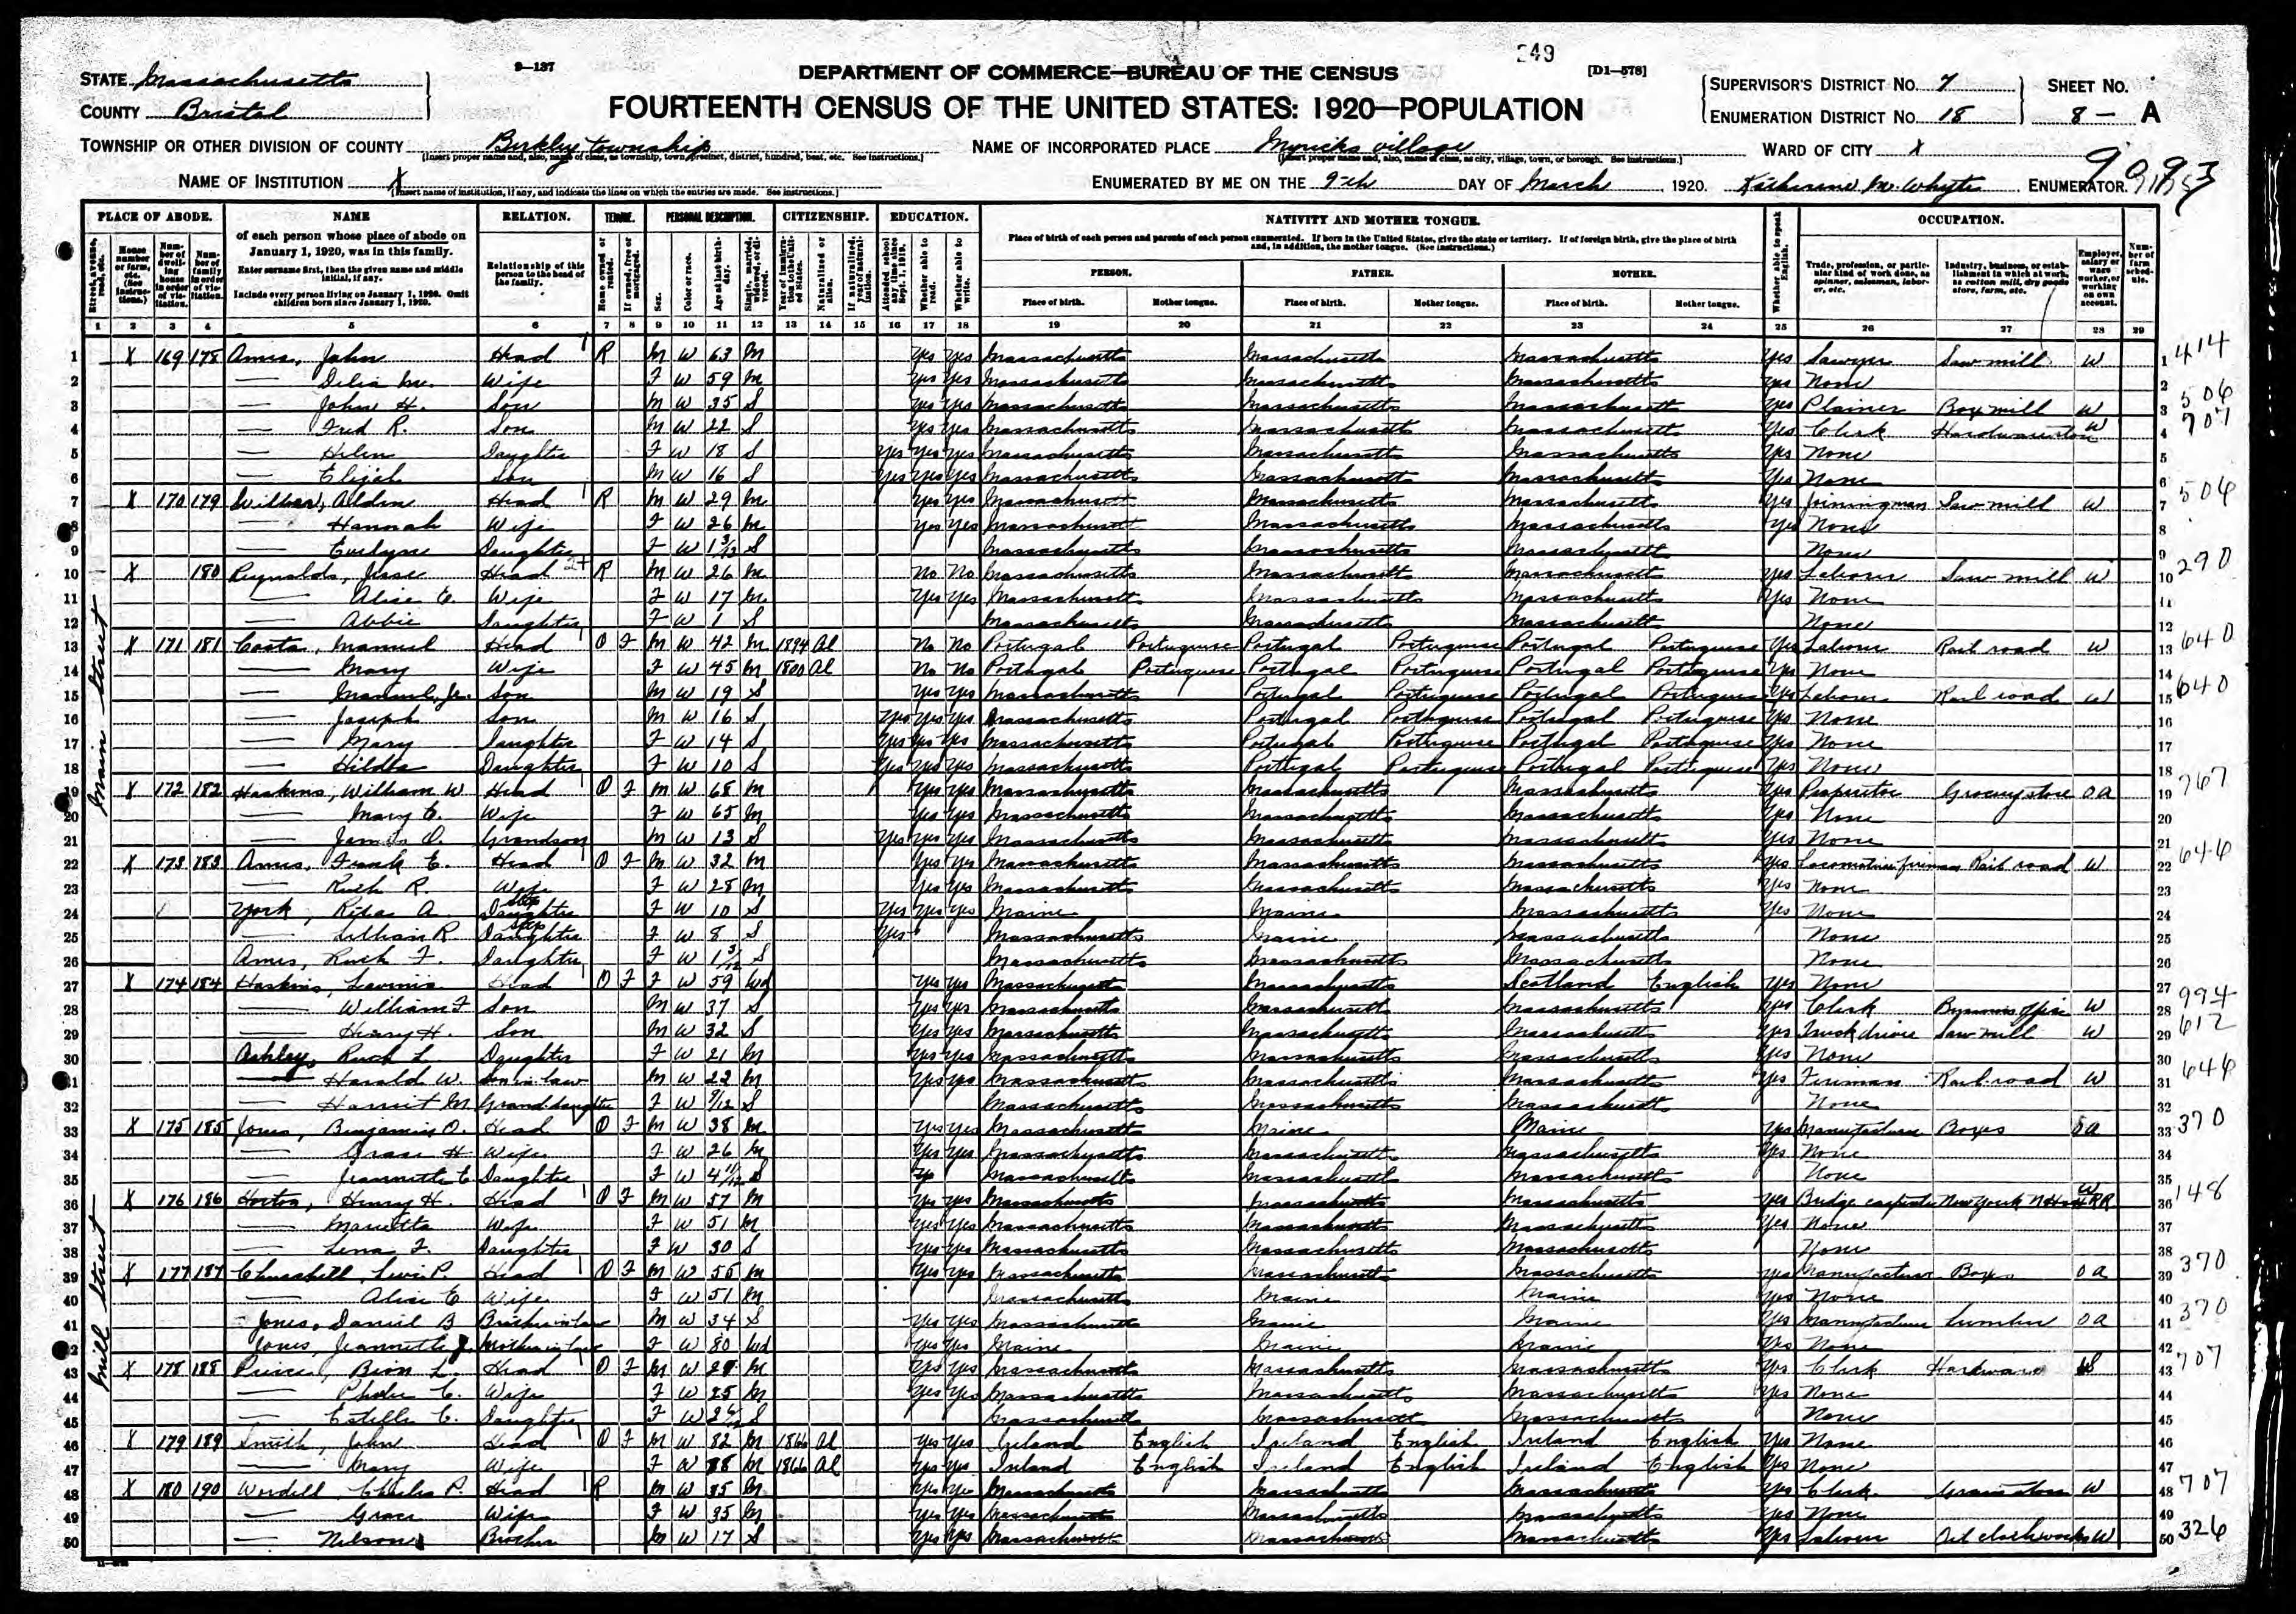 249
9—137
DEPARTMENT OF COMMERCE—BUREAU OF THE CENSUS
[D1—578]
STATE Massachusetts
COUNTY Bristol
FOURTEENTH CENSUS OF THE UNITED STATES: 1920—POPULATION
SUPERVISOR'S DISTRICT No. 7
ENUMERATION DISTRICT No. 18
SHEET No.
8 — A
TOWNSHIP OR OTHER DIVISION OF COUNTY Berkley township
[Insert proper name and, also, name of class, as township, town, precinct, district, hundred, beat, etc. See instructions.]
NAME OF INCORPORATED PLACE Myricks village
[Insert proper name and, also, name of class, as city, village, town, or borough. See instructions.]
WARD OF CITY X
NAME OF INSTITUTION X
[Insert name of institution, if any, and indicate the lines on which the entries are made. See instructions.]
ENUMERATED BY ME ON THE 9th DAY OF March, 1920. Katherine M. Whyte ENUMERATOR.
PLACE OF ABODE. NAME RELATION. TENURE. PERSONAL DESCRIPTION. CITIZENSHIP. EDUCATION. NATIVITY AND MOTHER TONGUE. OCCUPATION.
of each person whose place of abode on January 1, 1920, was in this family.
Enter surname first, then the given name and middle initial, if any.
Include every person living on January 1, 1920. Omit children born since January 1, 1920.
Relationship of this person to the head of the family.
Place of birth of each person and parents of each person enumerated. If born in the United States, give the state or territory. If of foreign birth, give the place of birth and, in addition, the mother tongue. (See instructions.)
PERSON. FATHER. MOTHER.
Place of birth. Mother tongue. Place of birth. Mother tongue. Place of birth. Mother tongue.
1 2 3 4 5 6 7 8 9 10 11 12 13 14 15 16 17 18 19 20 21 22 23 24 25 26 27 28 29
Main Street
1 X 169 178 Ames, John Head R M W 63 M Yes Yes Massachusetts Massachusetts Massachusetts Yes Sawyer Saw mill W 1 414
2 — Delia M. Wife F W 59 M Yes Yes Massachusetts Massachusetts Massachusetts Yes None 2
3 — John H. Son M W 35 S Yes Yes Massachusetts Massachusetts Massachusetts Yes Plainer Box mill W 3 506
4 — Fred R. Son M W 22 S Yes Yes Massachusetts Massachusetts Massachusetts Yes Clerk Hardware store W 4 707
5 — Helen Daughter F W 18 S Yes Yes Yes Massachusetts Massachusetts Massachusetts Yes None 5
6 — Elijah Son M W 16 S Yes Yes Yes Massachusetts Massachusetts Massachusetts Yes None 6
7 X 170 179 Wilbur, Alden Head R M W 29 M Yes Yes Massachusetts Massachusetts Massachusetts Yes Saw mill W 7 506
8 — Hannah Wife F W 26 M Yes Yes Massachusetts Massachusetts Massachusetts Yes None 8
9 — Evelyn Daughter F W 1 3/12 S Massachusetts Massachusetts Massachusetts None 9
10 X 180 Reynolds, Jesse Head R M W 26 M No No Massachusetts Massachusetts Massachusetts Yes Laborer Saw mill W 10 290
11 — Alice E. Wife F W 17 M Yes Yes Massachusetts Massachusetts Massachusetts Yes None 11
12 — Abbie Daughter F W 1 S Massachusetts Massachusetts Massachusetts None 12
13 X 171 181 Costa, Manuel Head O F M W 42 M 1894 Al No No Portugal Portuguese Portugal Portuguese Portugal Portuguese Yes Laborer Rail road W 13 640
14 — Mary Wife F W 45 M 1800 Al No No Portugal Portuguese Portugal Portuguese Portugal Portuguese Yes None 14
15 — Manuel, Jr. Son M W 19 S Yes Yes Massachusetts Portugal Portuguese Portugal Portuguese Yes Laborer Rail road W 15 640
16 — Joseph Son M W 16 S Yes Yes Yes Massachusetts Portugal Portuguese Portugal Portuguese Yes None 16
17 — Mary Daughter F W 14 S Yes Yes Yes Massachusetts Portugal Portuguese Portugal Portuguese Yes None 17
18 — Hilda Daughter F W 10 S Yes Yes Yes Massachusetts Portugal Portuguese Portugal Portuguese Yes None 18
19 X 172 182 Haskins, William W Head O F M W 68 M Yes Yes Massachusetts Massachusetts Massachusetts Yes Proprietor Grocery store OA 19 767
20 — Mary E. Wife F W 65 M Yes Yes Massachusetts Massachusetts Massachusetts Yes None 20
21 — James O. Grandson M W 13 S Yes Yes Yes Massachusetts Massachusetts Massachusetts Yes None 21
22 X 173 183 Ames, Frank E. Head O F M W 32 M Yes Yes Massachusetts Massachusetts Massachusetts Yes Locomotive fireman Rail road W 22 646
23 — Ruth R. Wife F W 28 M Yes Yes Massachusetts Massachusetts Massachusetts Yes None 23
24 York, Rita A Step Daughter F W 10 S Yes Yes Yes Maine Maine Massachusetts Yes None 24
25 — Lillian R. Step Daughter F W 8 S Yes Massachusetts Maine Massachusetts None 25
26 Ames, Ruth F. Daughter F W 1 3/12 S Massachusetts Massachusetts Massachusetts None 26
27 X 174 184 Haskins, Lavinia Head O F F W 59 Wd Yes Yes Massachusetts Massachusetts Scotland English Yes None 27
28 — William F Son M W 37 S Yes Yes Massachusetts Massachusetts Massachusetts Yes Clerk Business office W 28 994
29 — Henry H. Son M W 32 S Yes Yes Massachusetts Massachusetts Massachusetts Yes Truck driver Saw mill W 29 612
30 Ashley, Ruth L Daughter F W 21 M Yes Yes Massachusetts Massachusetts Massachusetts Yes None 30
31 — Harold W. Son in law M W 22 M Yes Yes Massachusetts Massachusetts Massachusetts Yes Fireman Rail road W 31 646
32 — Harriet M Grand daughter F W 9/12 S Massachusetts Massachusetts Massachusetts None 32
Mill Street
33 X 175 185 Jones, Benjamin O. Head O F M W 38 M Yes Yes Massachusetts Maine Maine Yes Manufacturer Boxes OA 33 370
34 — Grace H Wife F W 26 M Yes Yes Massachusetts Massachusetts Massachusetts Yes None 34
35 — Jeannette E Daughter F W 4 11/12 S Massachusetts Massachusetts Massachusetts None 35
36 X 176 186 Horton, Henry H. Head O F M W 57 M Yes Yes Massachusetts Massachusetts Massachusetts Yes Bridge carpenter New York N H & H RR W 36 148
37 — Marietta Wife F W 51 M Yes Yes Massachusetts Massachusetts Massachusetts Yes None 37
38 — Lena F. Daughter F W 30 S Yes Yes Massachusetts Massachusetts Massachusetts None 38
39 X 177 187 Churchill, Levi P. Head O F M W 55 M Yes Yes Massachusetts Massachusetts Massachusetts Yes Manufacturer Boxes OA 39 370
40 Alice E Wife F W 51 M Massachusetts Maine Maine Yes None 40
41 Jones, Daniel B Brother in law M W 34 S Yes Yes Massachusetts Maine Maine Yes Manufacturer Lumber OA 41 370
42 Jones, Jeannette J. Mother in law F W 80 Wd Yes Yes Maine Maine Maine Yes None 42
43 X 178 188 Peirce, Bion L. Head O F M W M Yes Yes Massachusetts Massachusetts Massachusetts Yes Clerk Hardware 43 707
44 — Phebe E. Wife F W 25 M Yes Yes Massachusetts Massachusetts Massachusetts Yes None 44
45 — Estelle E. Daughter F W S Massachusetts Massachusetts Massachusetts None 45
46 X 179 189 Smith, John Head O F M W 82 M 1866 Al Yes Yes Ireland English Ireland English Ireland English Yes None 46
47 — Mary Wife F W 88 M 1866 Al Yes Yes Ireland English Ireland English Ireland English Yes None 47
48 X 180 190 Wordell, Charles P. Head R M W 35 M Yes Yes Massachusetts Massachusetts Massachusetts Yes Clerk Grain store W 48 707
49 — Grace Wife F W 35 M Yes Yes Massachusetts Massachusetts Massachusetts Yes None 49
50 — Nelson Brother M W 17 S Yes Yes Massachusetts Massachusetts Massachusetts Yes Laborer W 50 326